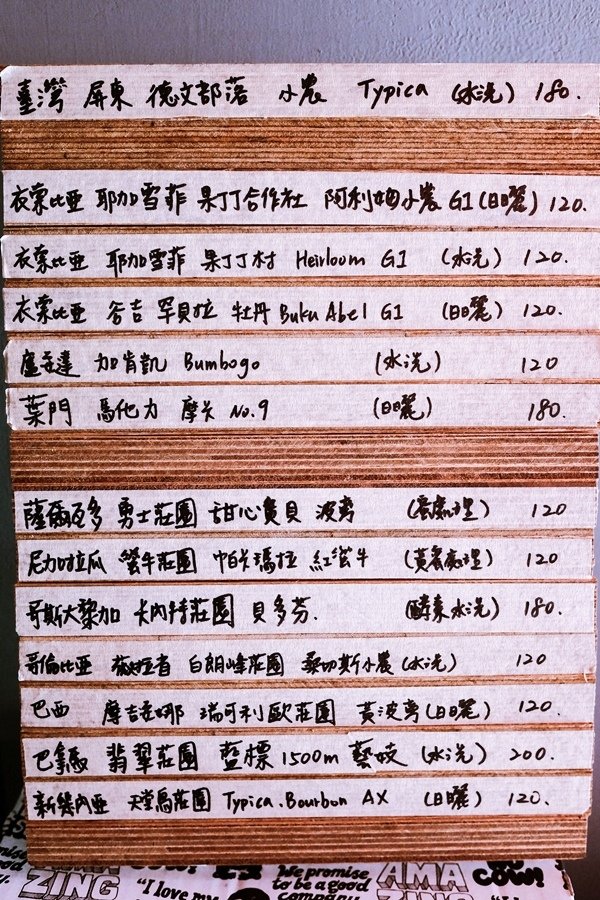 臺灣 屏東 德文部落 小農 Typica (水洗) 180.
衣索比亞 耶加雪菲 果丁丁合作社 阿利姆小農 G1 (日曬) 120.
衣索比亞 耶加雪菲 果丁丁村 Heirloom G1 (水洗) 120.
衣索比亞 谷吉 罕貝拉 牡丹 Buku Abel G1 (日曬) 120.
盧安達 加肯凱 Bumbogo (水洗) 120
葉門 馬他力 摩卡 No.9 (日曬) 180.
薩爾瓦多 勇士莊園 甜心寶貝 波旁 (蜜處理) 120
尼加拉瓜 蠻牛莊園 帕卡瑪拉 紅蠻牛 (黃蜜處理) 120
哥斯大黎加 卡內特莊園 貝多芬. (酵素水洗) 180.
哥倫比亞 薇拉省 白朗峰莊園 桑切斯小農 (水洗) 120
巴西 摩吉安娜 瑞可利歐莊園 黃波旁 (日曬) 120.
巴拿馬 翡翠莊園 藍標 1500m 藝妓 (水洗) 200.
新幾內亞 天堂鳥莊園 Typica.Bourbon AX (日曬) 120.
AMAZING
"I love my
We promise to be a good company
AMAZING
COW!